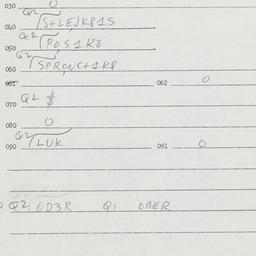 030 0
040 Q2 S+LEJK81S
050 Q2 POS1K8
060 Q2 SPRONC+1K8
061 062 0
070 Q2 $
080 0
090 Q2 LUK 091 0
Q2: OD3R Q1 OBER